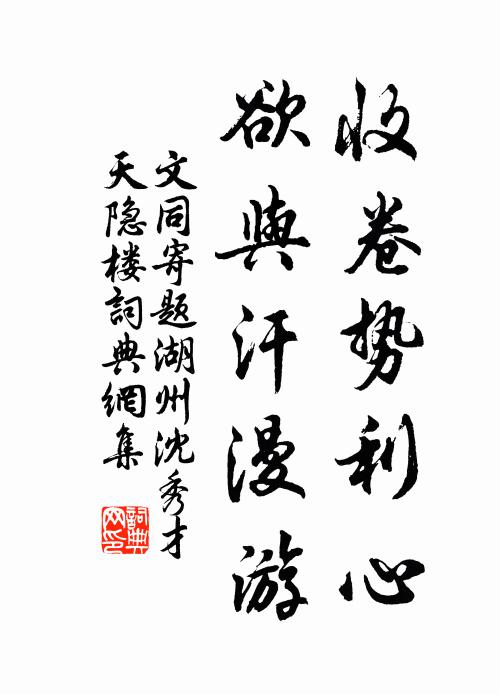 收卷势利心
欲與汗漫游
文同寄题湖州沈秀才
天隐楼詞典網集
詞典網印